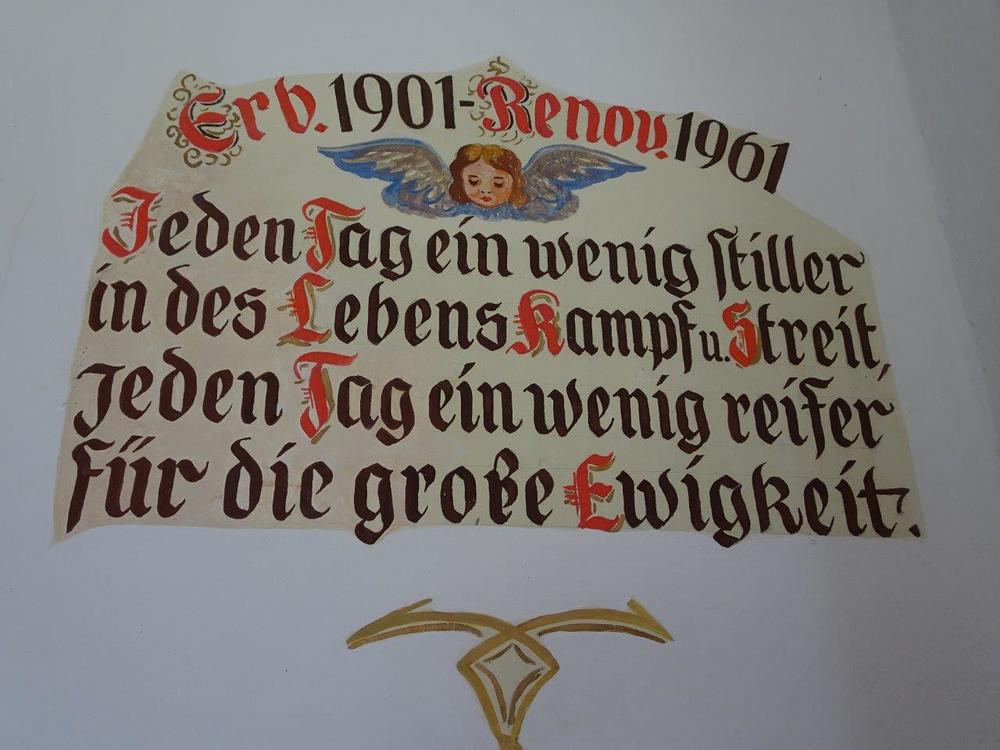 Erb. 1901-Renov. 1961
Jeden Tag ein wenig stiller
in des Lebens Kampf u. Streit,
Jeden Tag ein wenig reifer
für die große Ewigkeit.